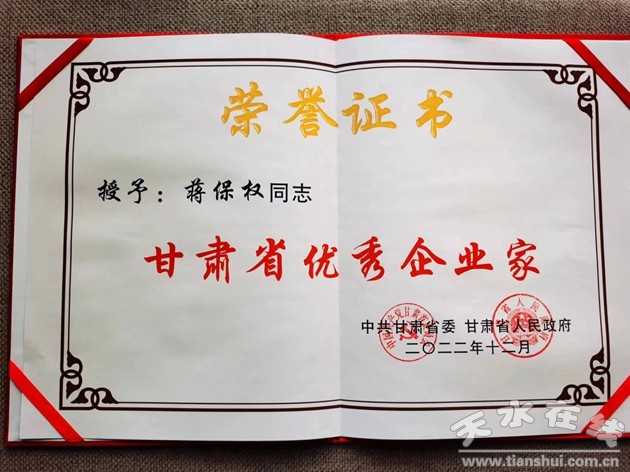 荣誉证书
授予：蒋保权同志
甘肃省优秀企业家
中共甘肃省委 甘肃省人民政府
二〇二二年十二月
天水在线
www.tianshui.com.cn